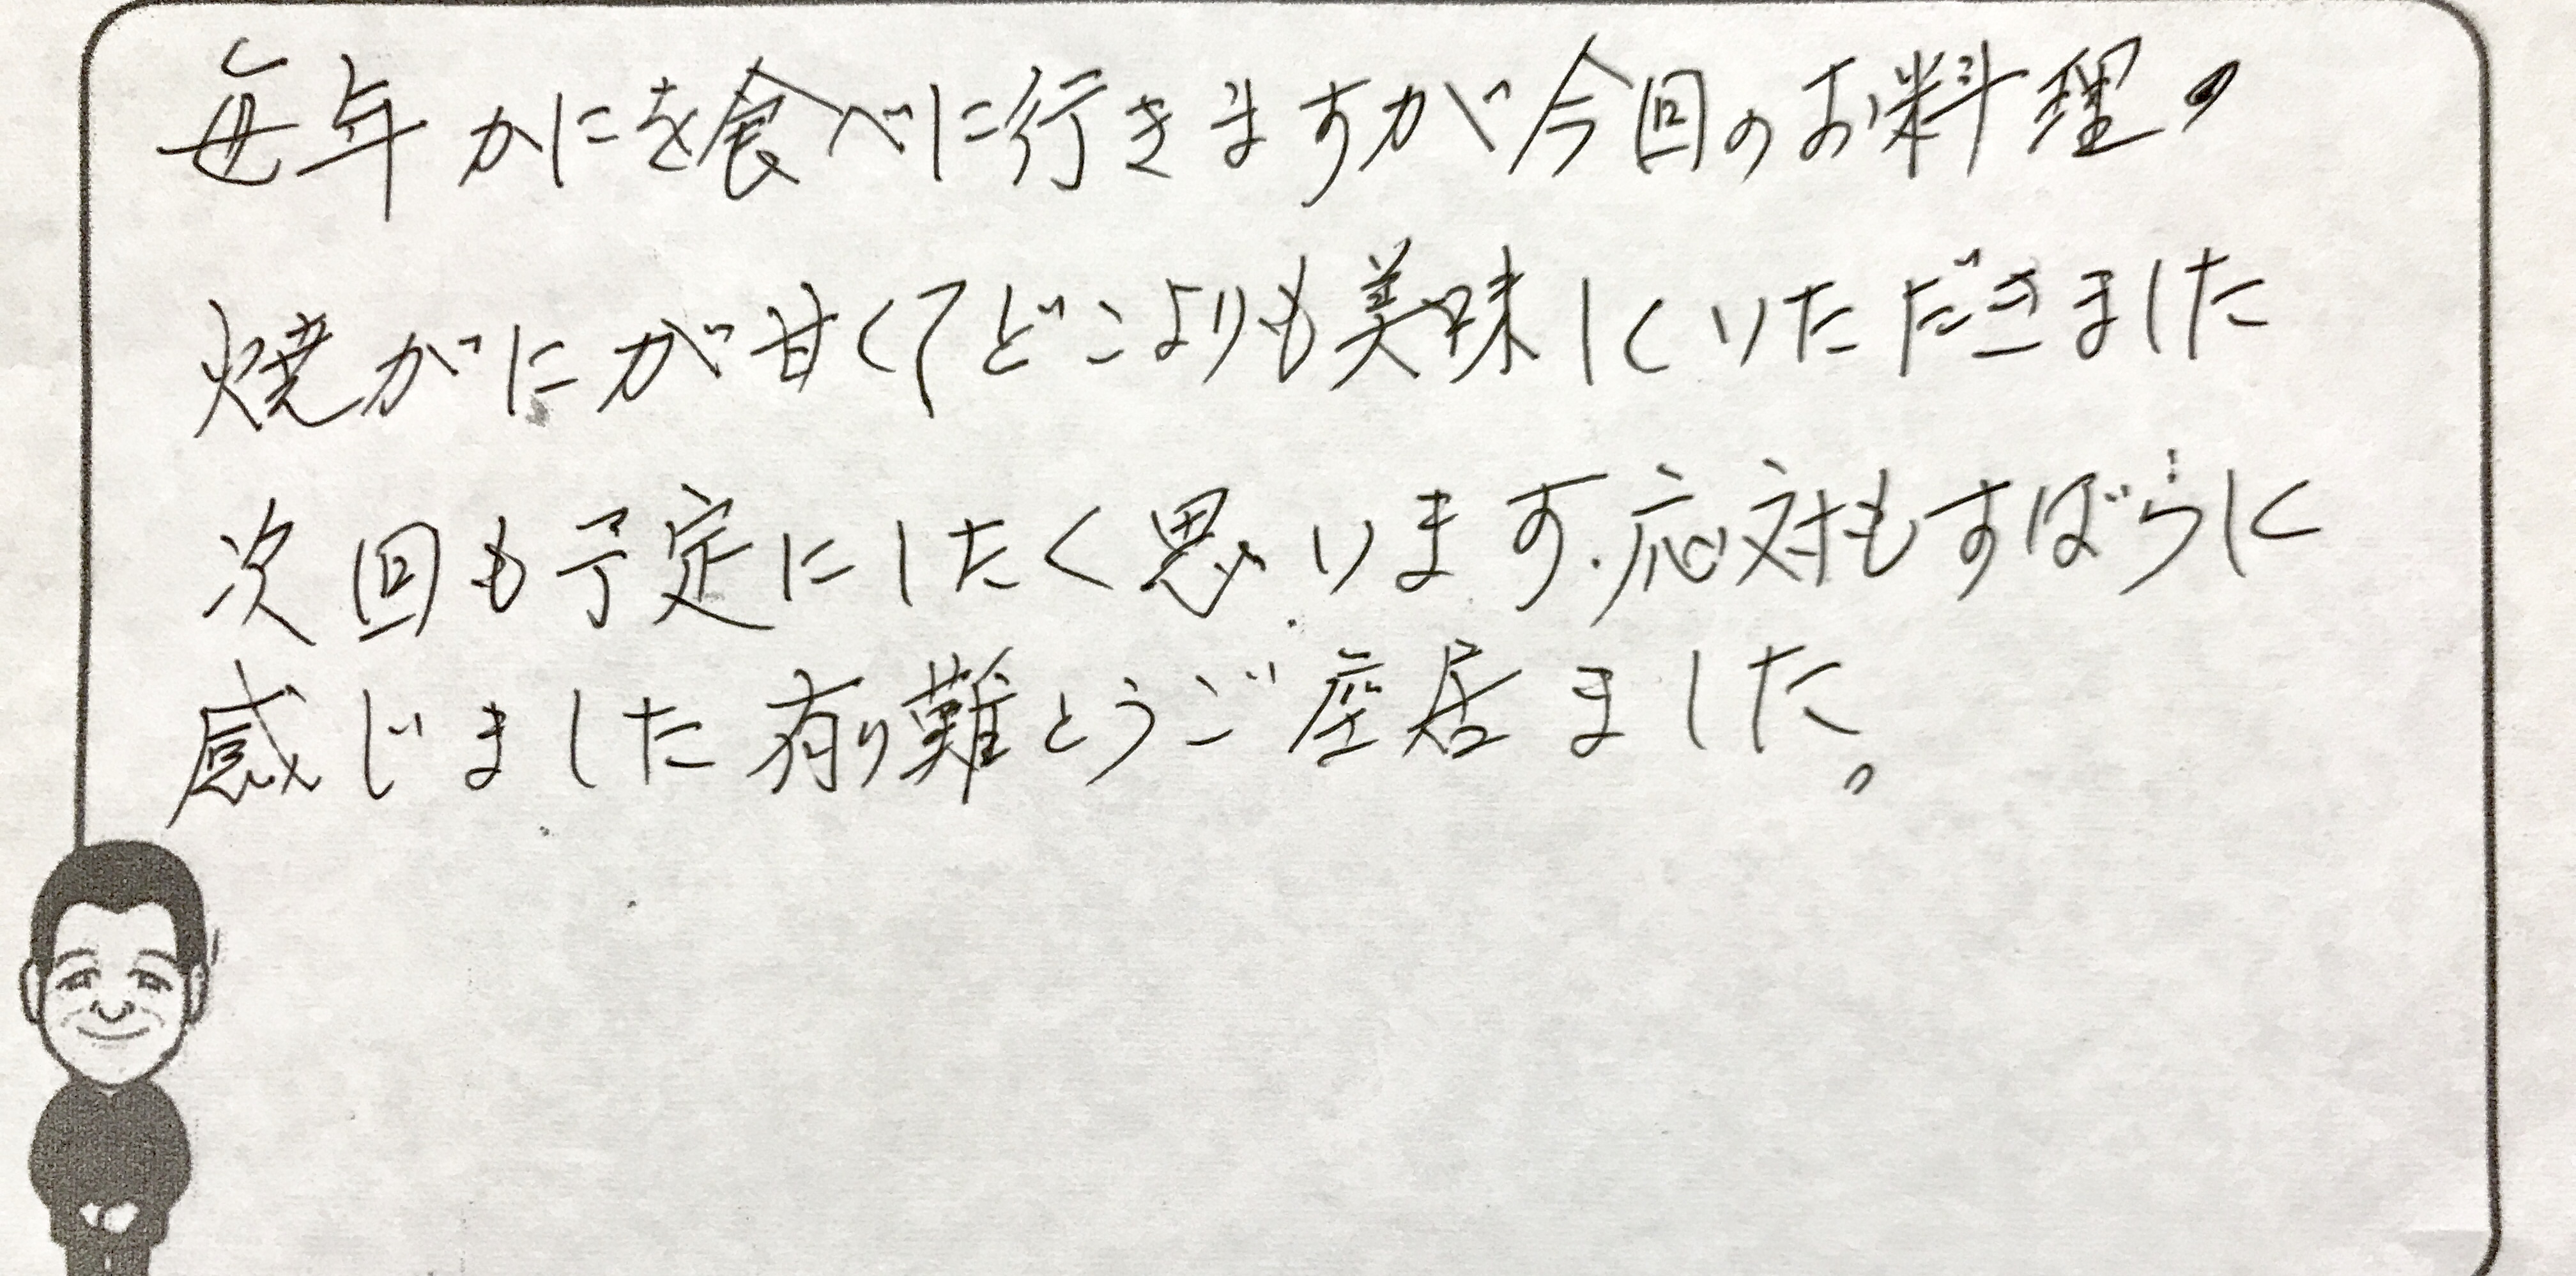 毎年かにを食べに行きますが今回のお料理の
焼がにが甘くてどこよりも美味しくいただきました
次回も予定にしたく思います.応対もすばらしく
感じました有り難とうご座居ました。